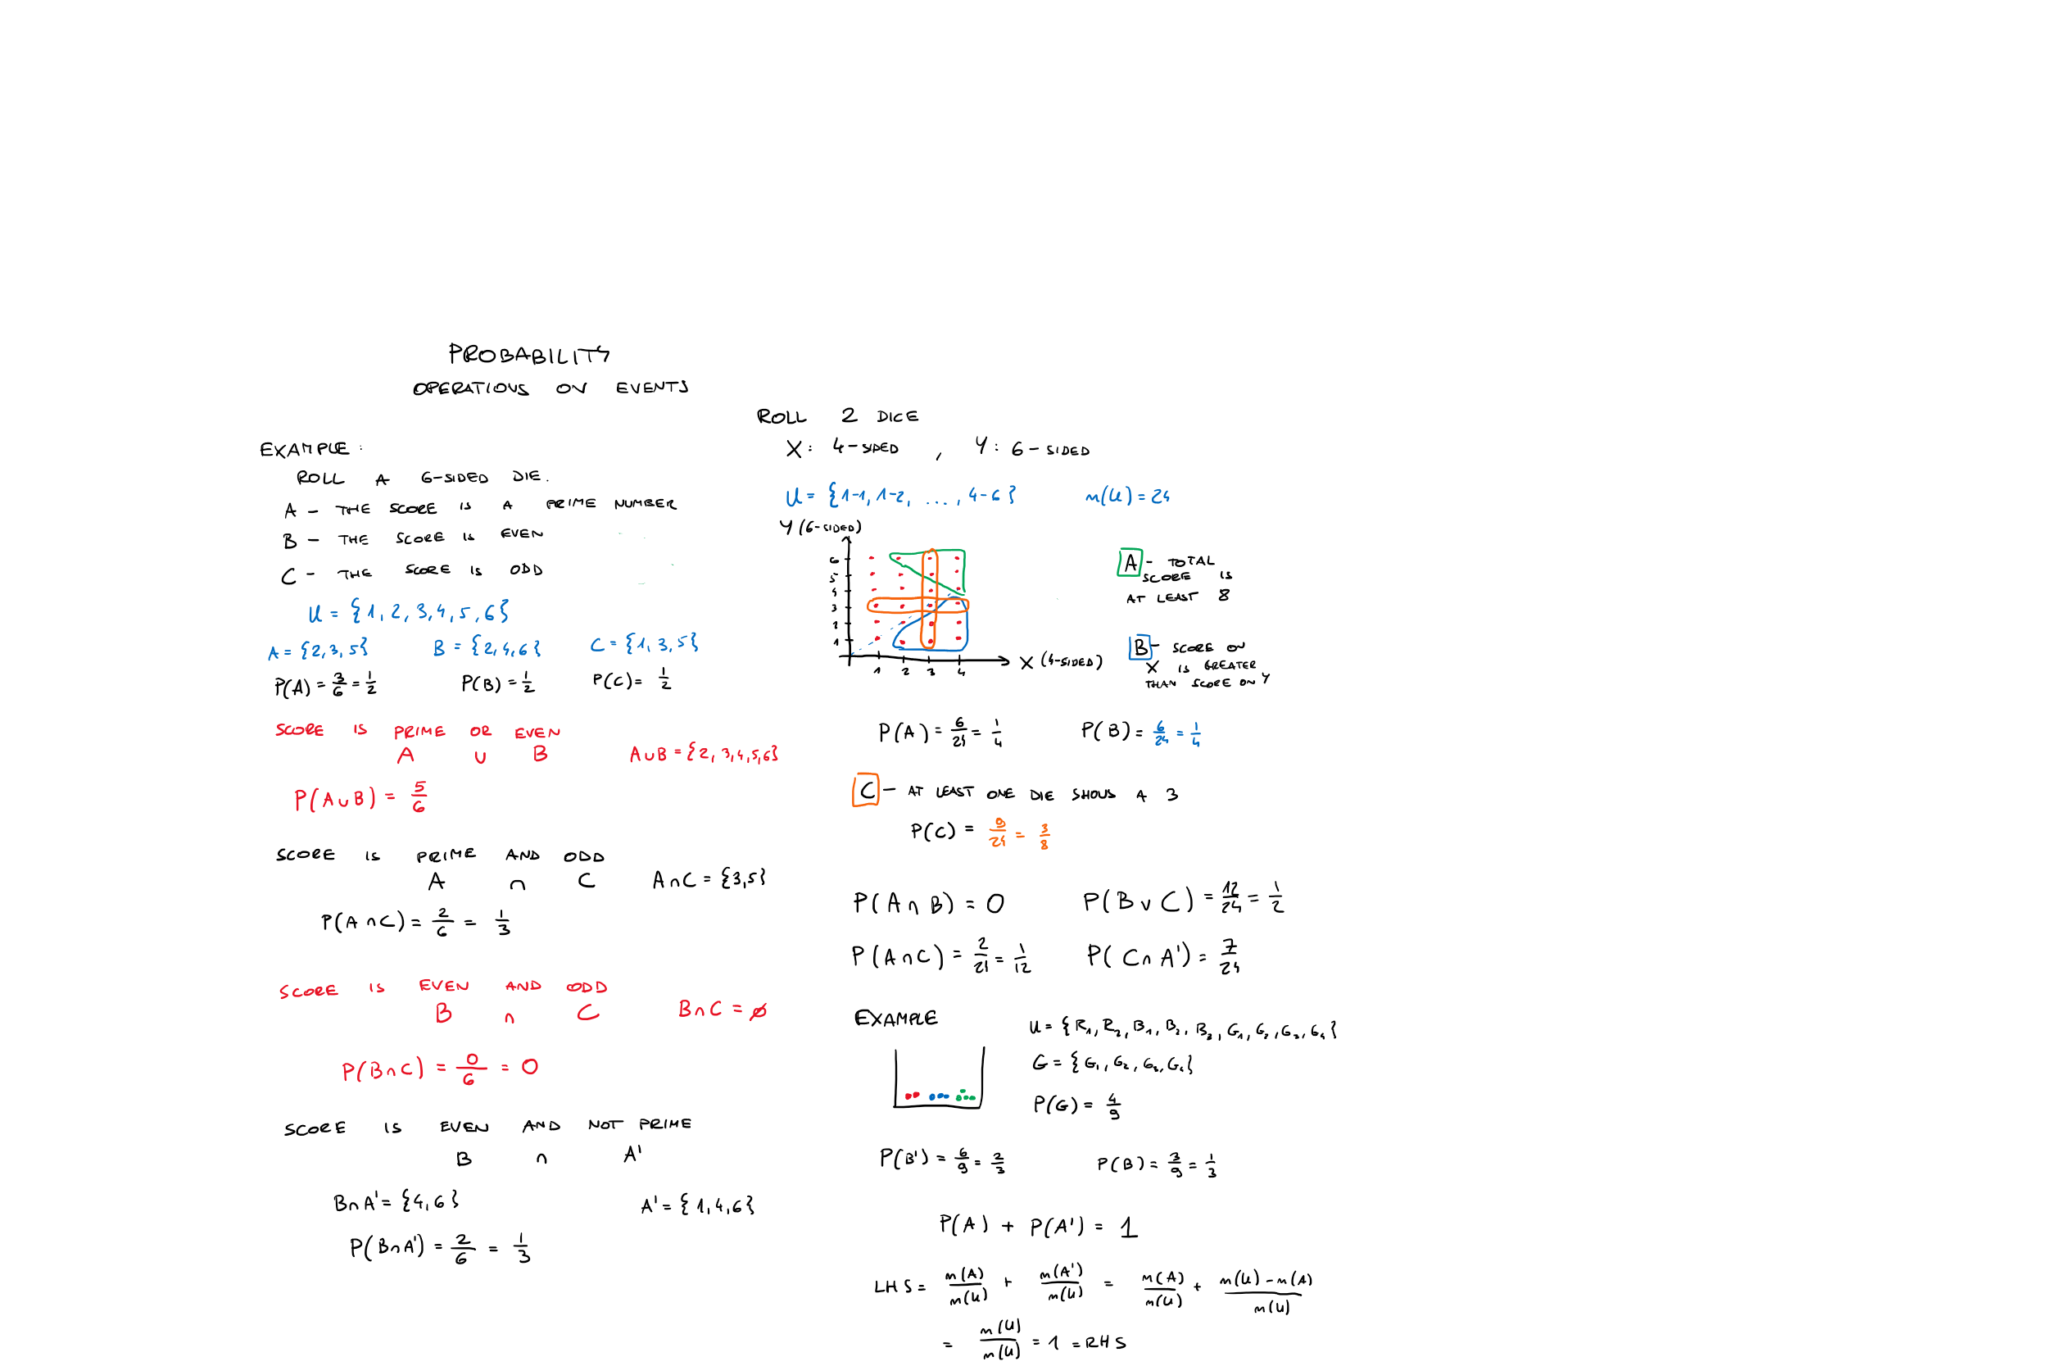 PROBABILITY
OPERATIONS ON EVENTS
EXAMPLE:
ROLL A 6-SIDED DIE.
A - THE SCORE IS A PRIME NUMBER
B - THE SCORE IS EVEN
C - THE SCORE IS ODD
U = {1, 2, 3, 4, 5, 6}
A = {2, 3, 5} B = {2, 4, 6} C = {1, 3, 5}
P(A) = 3/6 = 1/2 P(B) = 1/2 P(C) = 1/2
SCORE IS PRIME OR EVEN
A ∪ B A∪B = {2, 3, 4, 5, 6}
P(A∪B) = 5/6
SCORE IS PRIME AND ODD
A ∩ C A∩C = {3, 5}
P(A∩C) = 2/6 = 1/3
SCORE IS EVEN AND ODD
B ∩ C B∩C = ∅
P(B∩C) = 0/6 = 0
SCORE IS EVEN AND NOT PRIME
B ∩ A'
B∩A' = {4, 6} A' = {1, 4, 6}
P(B∩A') = 2/6 = 1/3
ROLL 2 DICE
X: 4-SIDED , Y: 6-SIDED
U = {1-1, 1-2, ..., 4-6} n(U) = 24
Y (6-SIDED)
6
5
4
3
2
1
1 2 3 4
X (4-SIDED)
A - TOTAL
SCORE IS
AT LEAST 8
B - SCORE ON
X IS GREATER
THAN SCORE ON Y
P(A) = 6/24 = 1/4 P(B) = 6/24 = 1/4
C - AT LEAST ONE DIE SHOWS A 3
P(C) = 9/24 = 3/8
P(A∩B) = 0 P(B∪C) = 12/24 = 1/2
P(A∩C) = 2/24 = 1/12 P(C∩A') = 7/24
EXAMPLE
U = {R₁, R₂, B₁, B₂, B₃, G₁, G₂, G₃, G₄}
G = {G₁, G₂, G₃, G₄}
P(G) = 4/9
P(B') = 6/9 = 2/3 P(B) = 3/9 = 1/3
P(A) + P(A') = 1
LHS = n(A)/n(U) + n(A')/n(U) = n(A)/n(U) + n(U) - n(A)/n(U)
= n(U)/n(U) = 1 = RHS